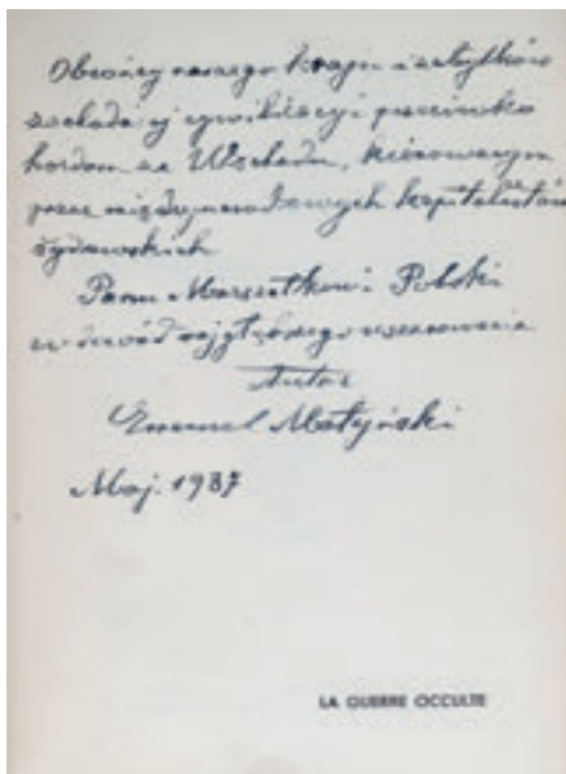 Obrońcy naszego kraju i zabytków
cywilizacyi przeciwko
hordom ze Wschodu, kierowanym
przez międzynarodowych kapitalistów
żydowskich
Panu Marszałkowi Polski
w dowód najgłębszego uszanowania
Autor
Emanuel Małyński
Maj. 1937
LA GUERRE OCCULTE